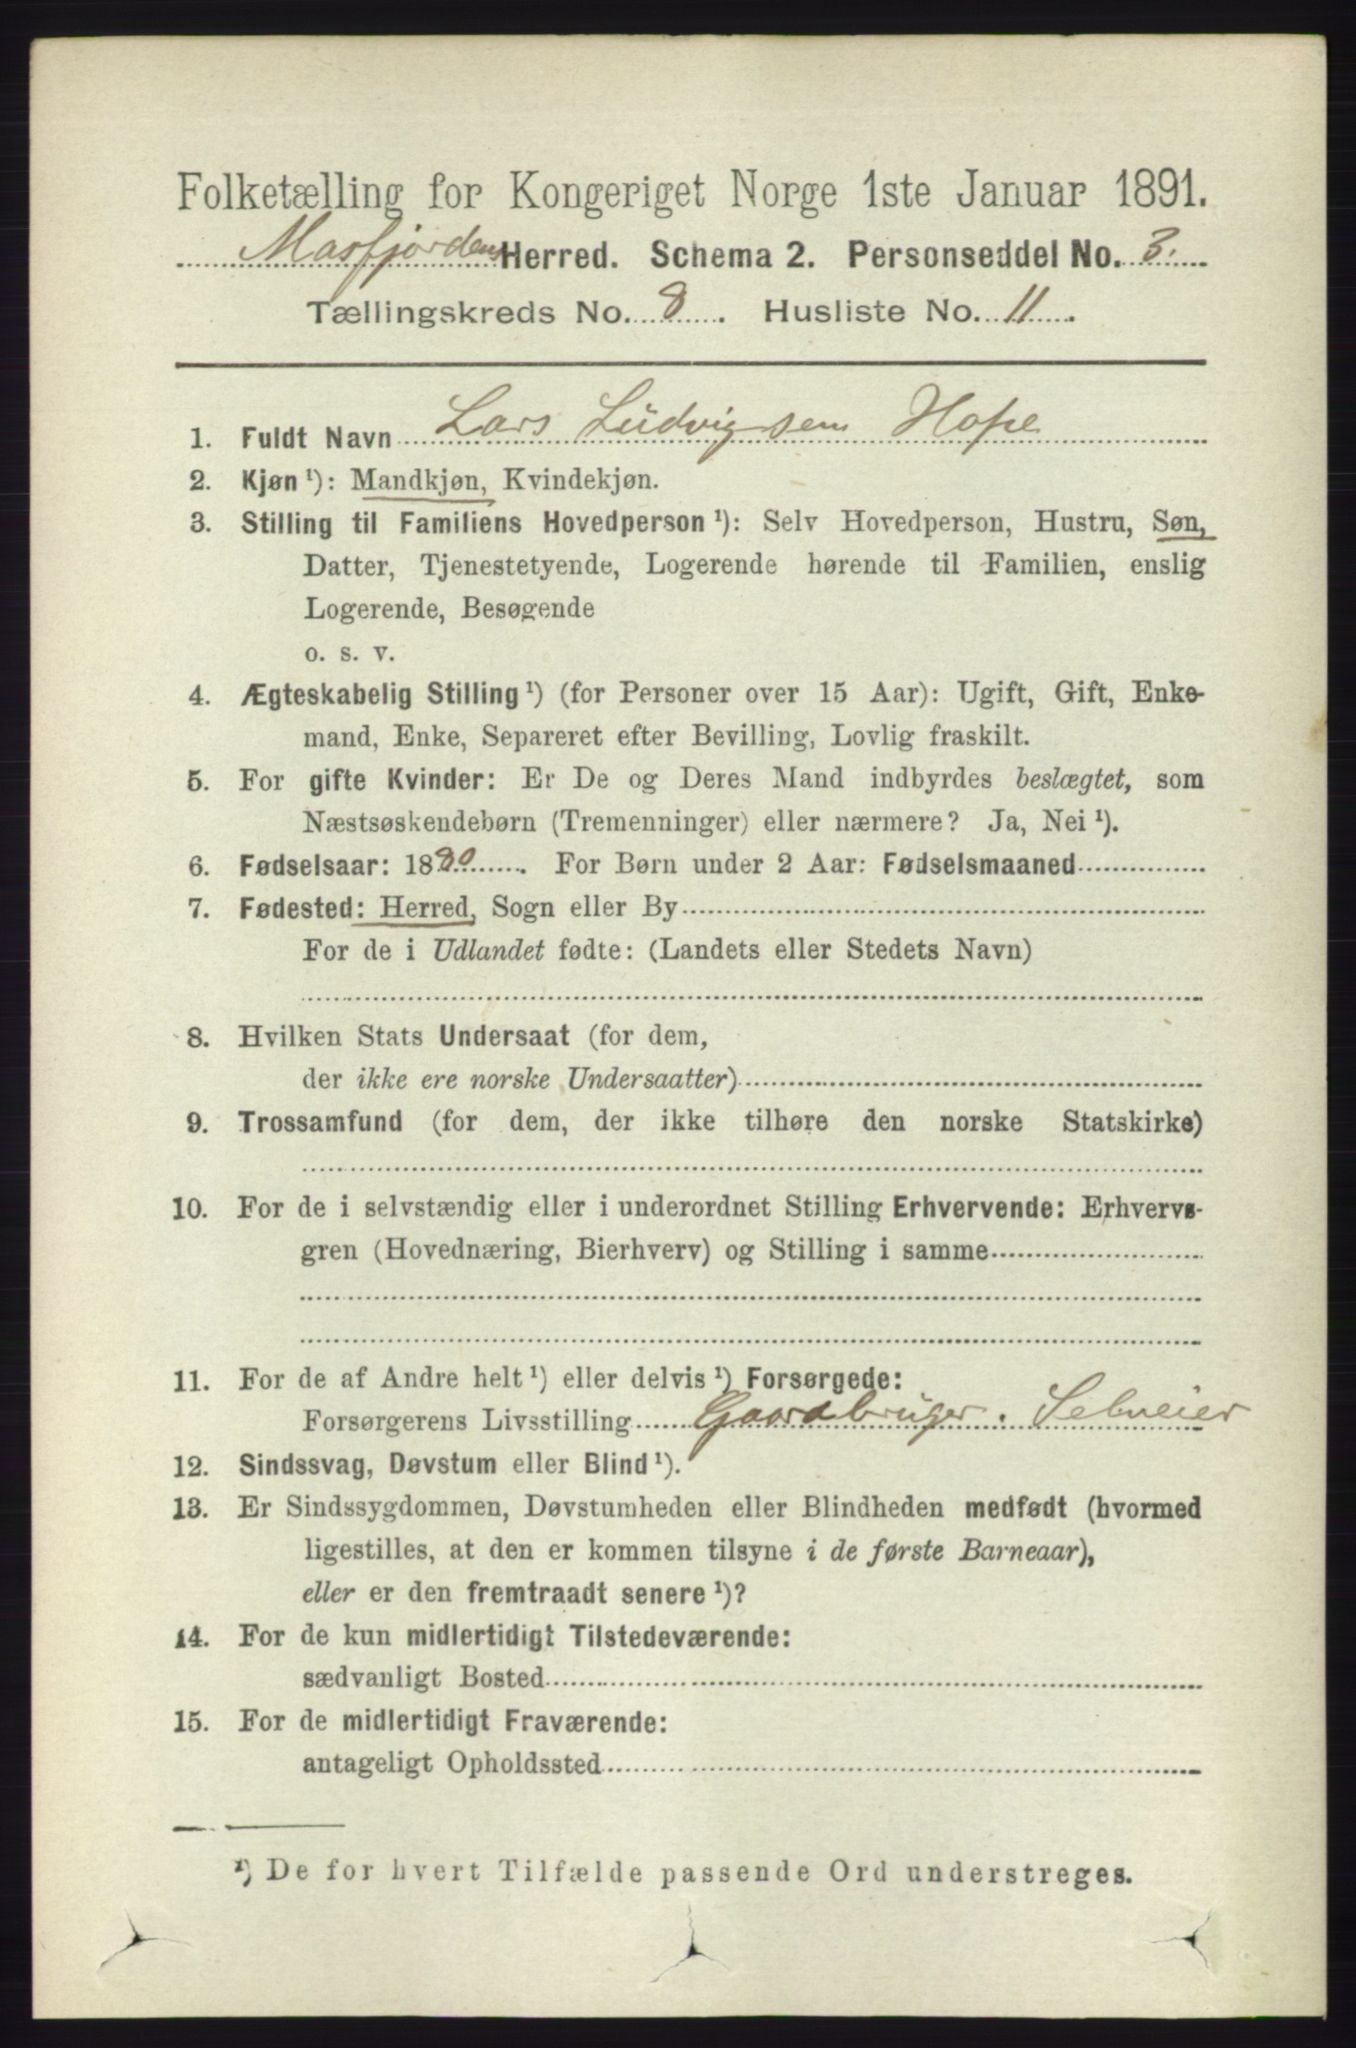 Folketælling for Kongeriget Norge 1ste Januar 1891.
Masfjordens Herred. Schema 2. Personseddel No. 3.
Tællingskreds No. 8. Husliste No. 11.
1. Fuldt Navn Lars Ludvigsen Hope
2. Kjøn ¹): Mandkjøn, Kvindekjøn.
3. Stilling til Familiens Hovedperson ¹): Selv Hovedperson, Hustru, Søn,
Datter, Tjenestetyende, Logerende hørende til Familien, enslig
Logerende, Besøgende
o. s. v.
4. Ægteskabelig Stilling ¹) (for Personer over 15 Aar): Ugift, Gift, Enke-
mand, Enke, Separeret efter Bevilling, Lovlig fraskilt.
5. For gifte Kvinder: Er De og Deres Mand indbyrdes beslægtet, som
Næstsøskendebørn (Tremenninger) eller nærmere? Ja, Nei ¹).
6. Fødselsaar: 1880. For Børn under 2 Aar: Fødselsmaaned
7. Fødested: Herred, Sogn eller By
For de i Udlandet fødte: (Landets eller Stedets Navn)
8. Hvilken Stats Undersaat (for dem,
der ikke ere norske Undersaatter)
9. Trossamfund (for dem, der ikke tilhøre den norske Statskirke)
10. For de i selvstændig eller i underordnet Stilling Erhvervende: Erhvervs-
gren (Hovednæring, Bierhverv) og Stilling i samme
11. For de af Andre helt ¹) eller delvis ¹) Forsørgede:
Forsørgerens Livsstilling Gaardbruger. Selveier
12. Sindssvag, Døvstum eller Blind ¹).
13. Er Sindssygdommen, Døvstumheden eller Blindheden medfødt (hvormed
ligestilles, at den er kommen tilsyne i de første Barneaar),
eller er den fremtraadt senere ¹)?
14. For de kun midlertidigt Tilstedeværende:
sædvanligt Bosted
15. For de midlertidigt Fraværende:
antageligt Opholdssted
¹) De for hvert Tilfælde passende Ord understreges.